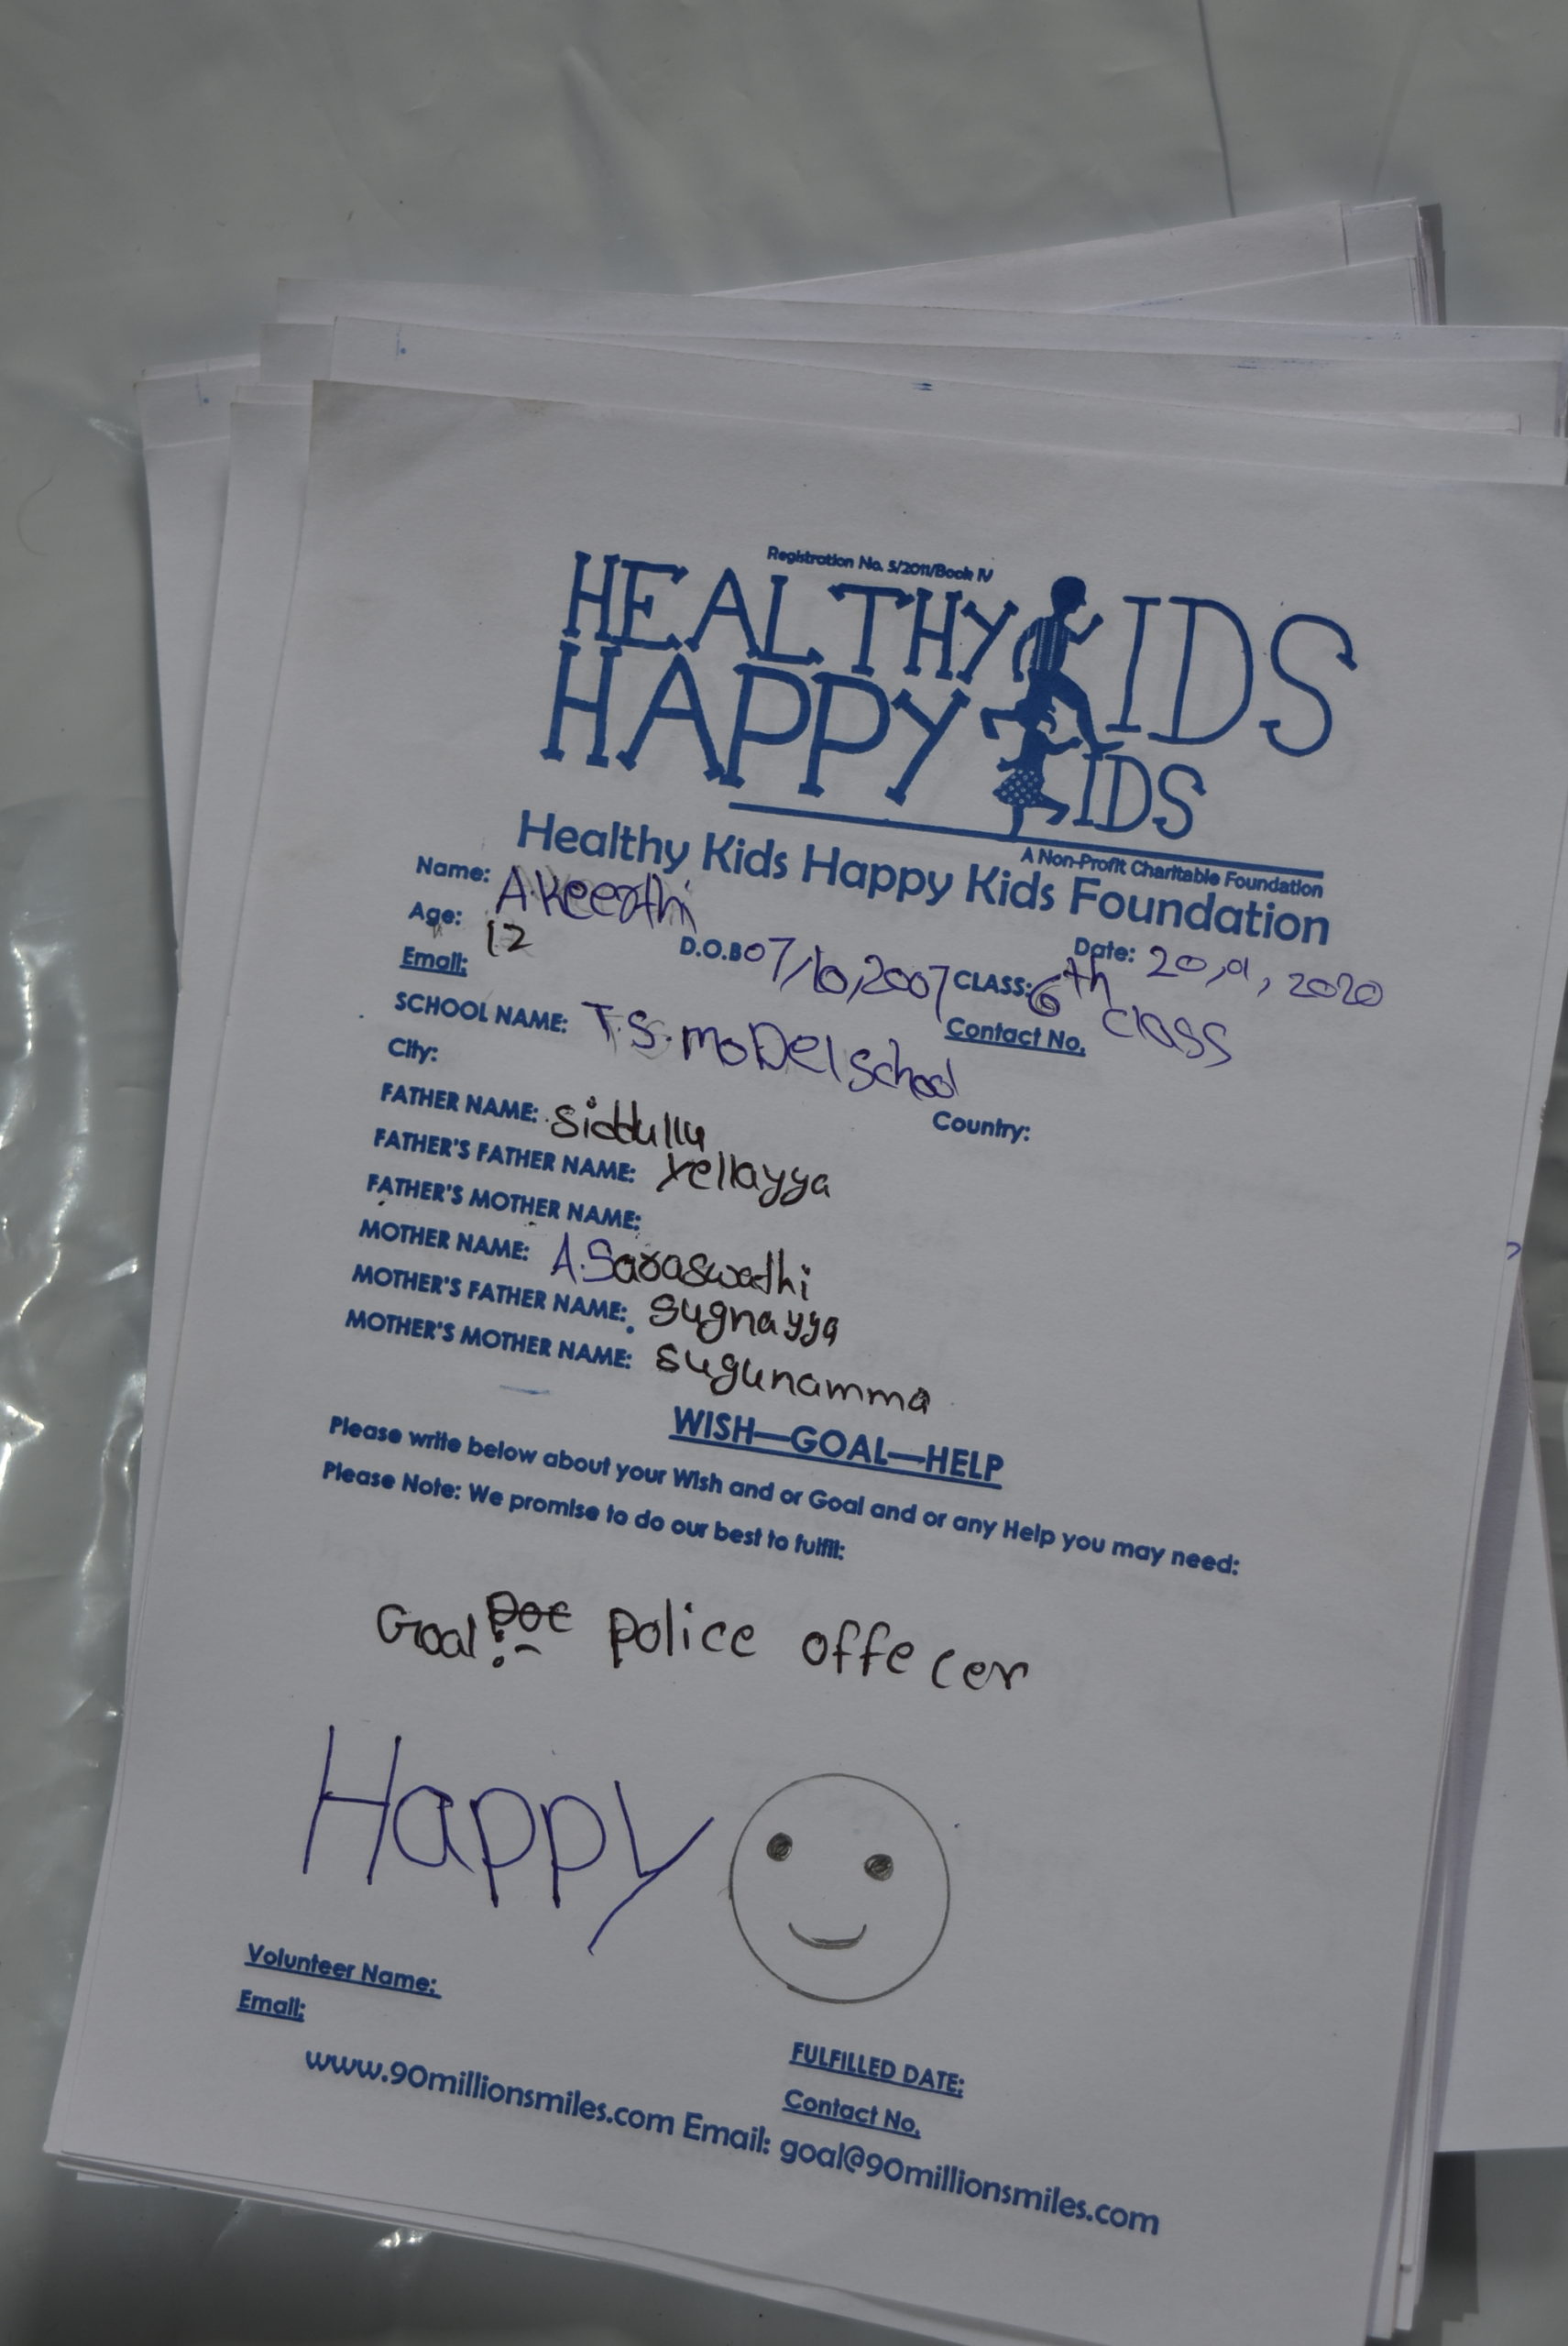 Registration No. 5/2011/Book IV
HEALTHY KIDS
HAPPY KIDS
A Non-Profit Charitable Foundation
Healthy Kids Happy Kids Foundation
Name: A.Keerthi
Date: 20,01,2020
Age: 12 D.O.B 07/10,2007 CLASS: 6th class
Email: Contact No.
SCHOOL NAME: T.S. moDel school
City: Country:
FATHER NAME: Siddullu
FATHER'S FATHER NAME: Yellayya
FATHER'S MOTHER NAME:
MOTHER NAME: A.Saraswathi
MOTHER'S FATHER NAME: Sugnayya
MOTHER'S MOTHER NAME: Sugunamma
WISH—GOAL—HELP
Please write below about your Wish and or Goal and or any Help you may need:
Please Note: We promise to do our best to fulfill:
Goal: police offecer
Happy
Volunteer Name: FULFILLED DATE:
Email: Contact No.
www.90millionsmiles.com Email: goal@90millionsmiles.com